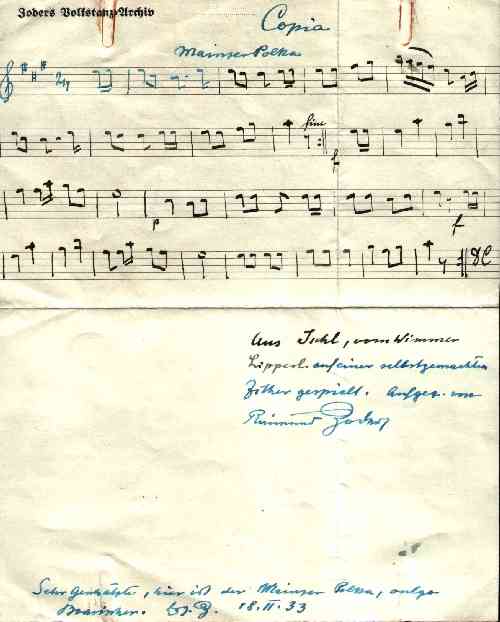 Zoders Volkstanz-Archiv
Copia
Mainzer Polka
2/4
fine
f
p
f
DC
Aus Ischl, vom Wimmer
Lipperl. auf einer selbstgemachten
Zither gespielt. Aufgez. von
Raimund Zoder
Sehr Geehrte, hier ist der Mainzer Polka,
18.II.33